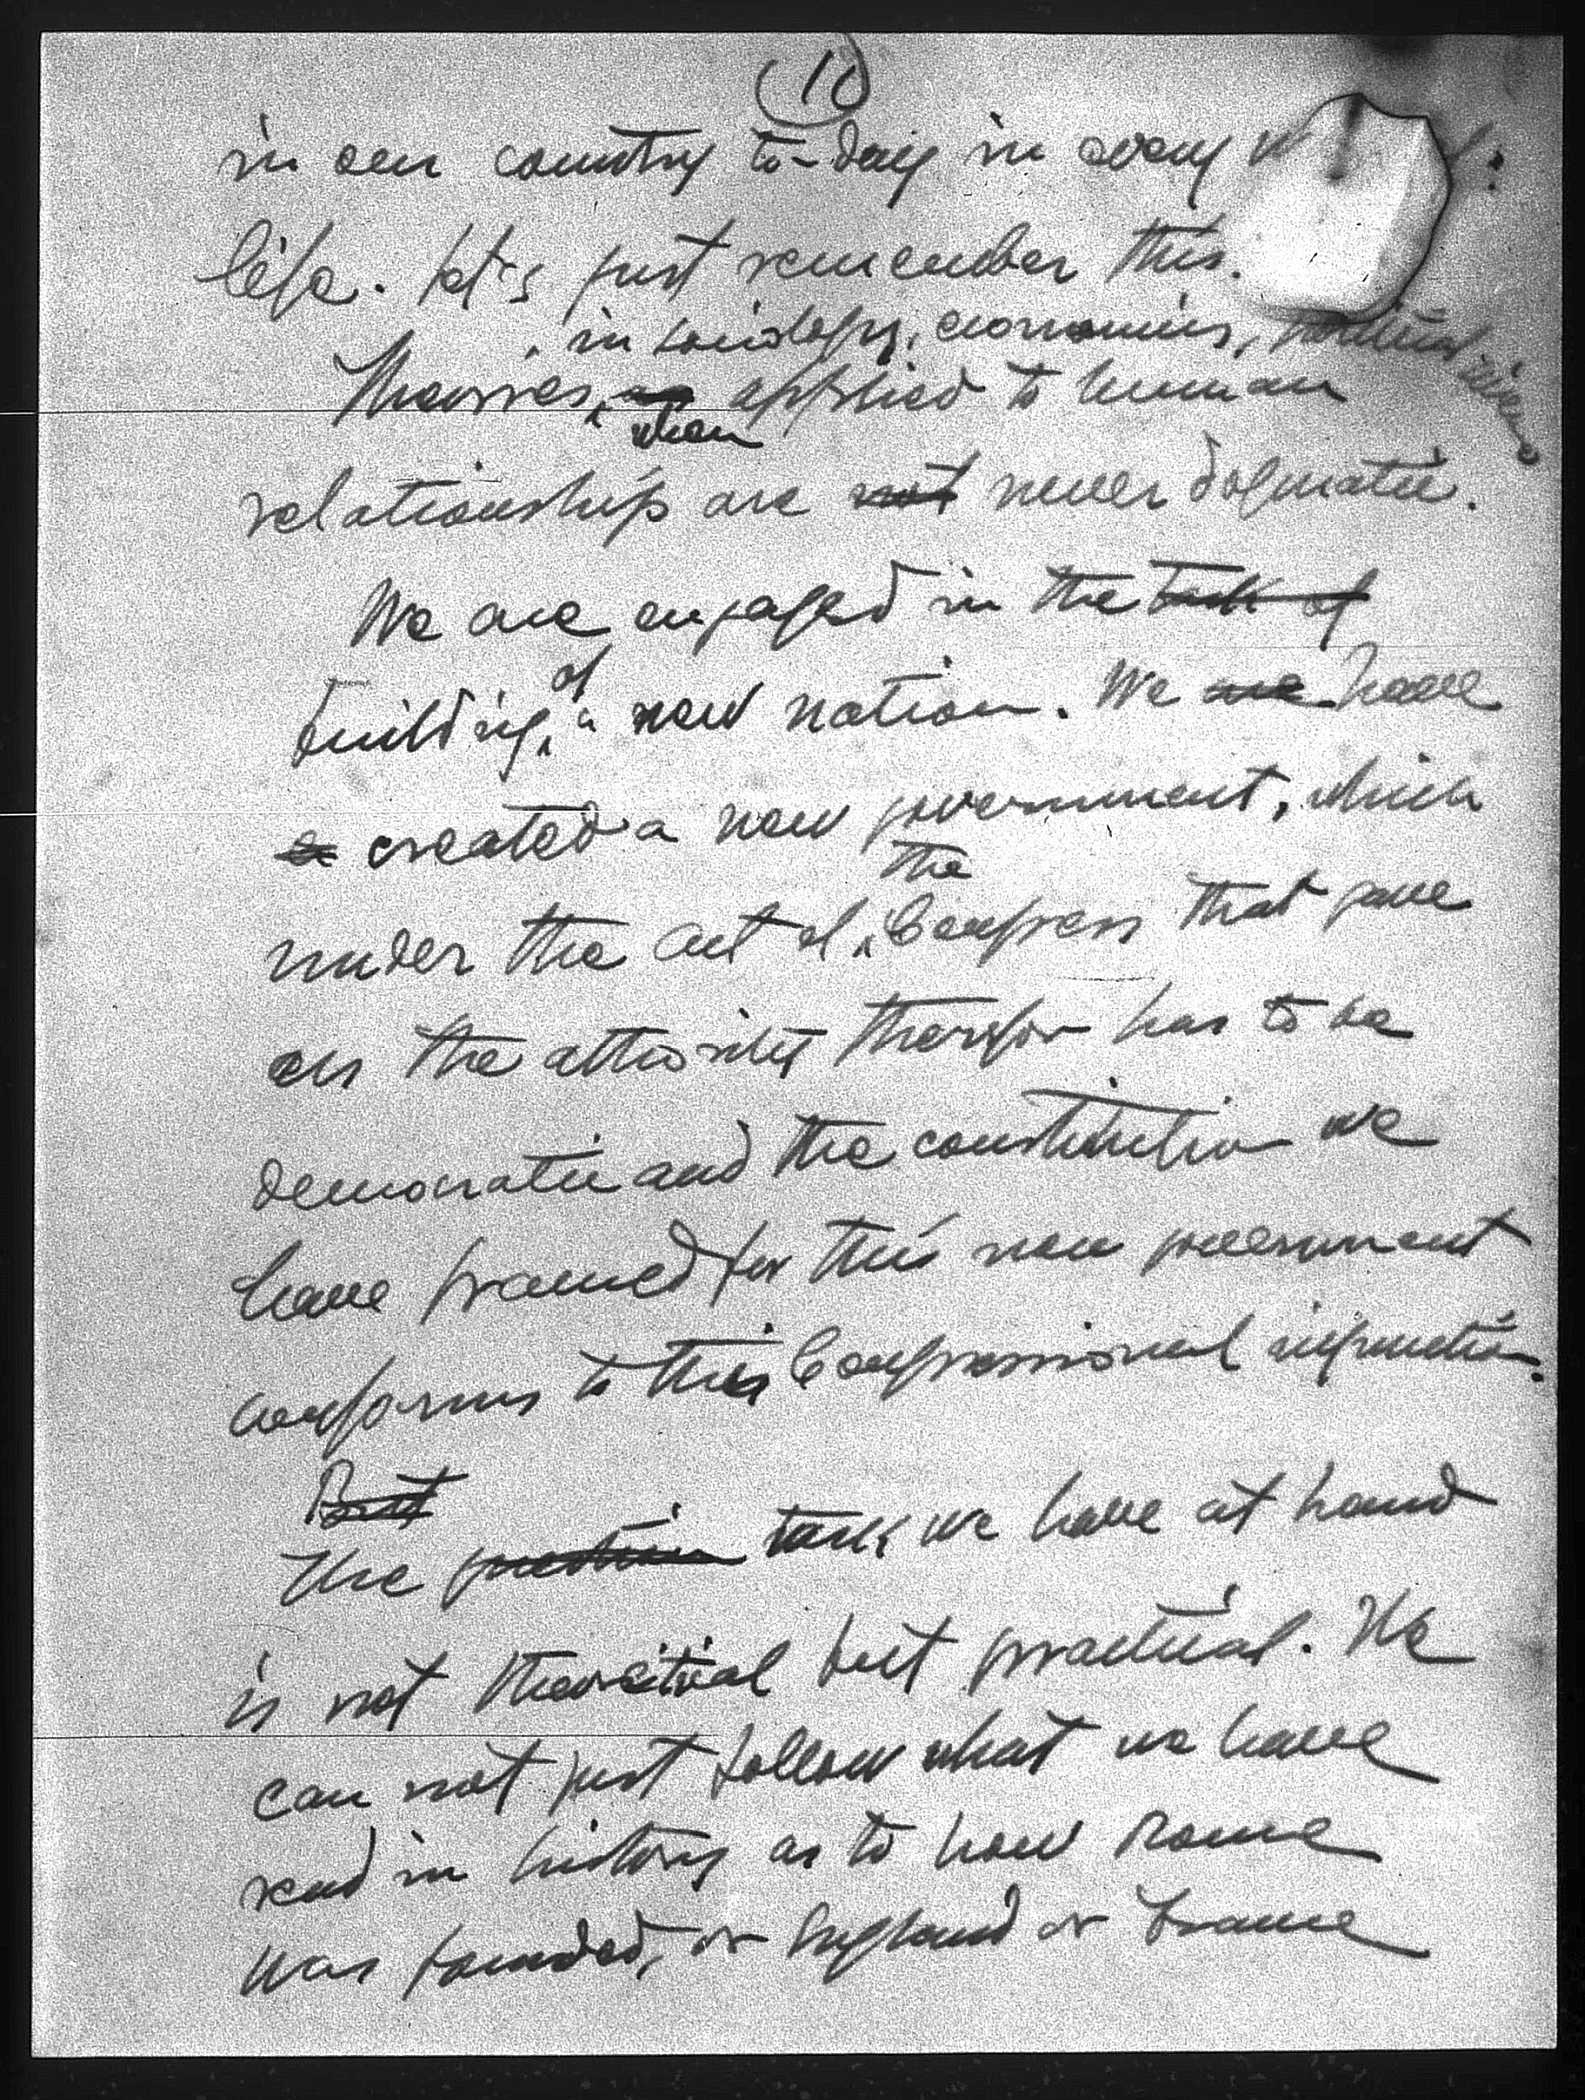 10
in our country to-day in every
life. Let's just remember this.
, in sociology, economics, political science
Theories, as applied to human
when
relationship are not never dogmatic.
We are engaged in the task of
of
building a new nation. We are have
a created a new government, which
the
under the act of Congress that gave
us the athority therefor has to be
democratic and the constitution we
have framed for this new government
conforms to this Congressional injunction.
But
The question task we have at hand
is not theoretical but practical. We
can not just follow what we have
read in history as to how Rome
was founded, or England or France